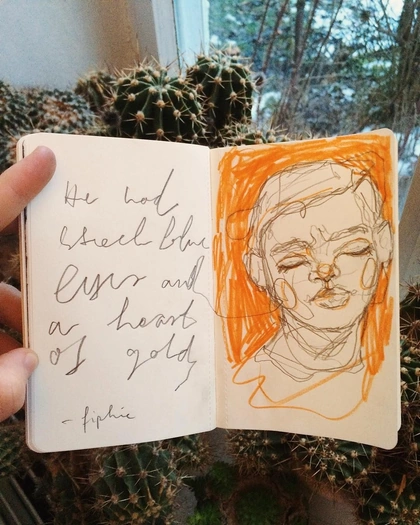 He had
steel blue
eyes and
a heart
of gold,
- fiphie